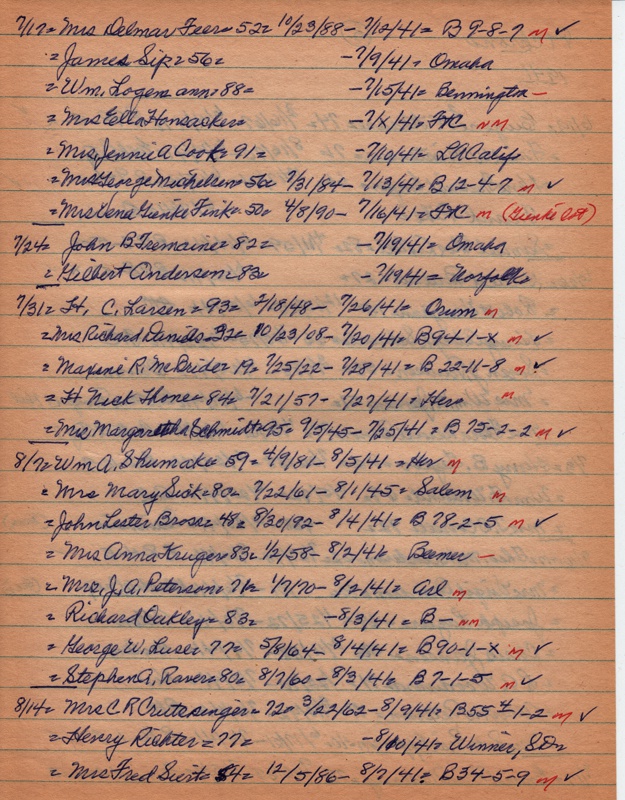 7/17 = Mrs Delmar Feer = 52 = 10/23/88 - 7/12/41 = B 9-8-7 m ✓
= James Sip = 56 = - 7/9/41 = Omaha
= Wm. Logemann = 88 = - 7/15/41 = Bennington -
= Mrs Ella Honsacker = - 7/X/41 = FtC NM
= Mrs, Jennie A Cook = 91 = - 7/10/41 = LA Calif
= Mrs George Michelsen = 56 = 7/31/84 - 7/13/41 = B 12-4-7 m ✓
= Mrs Lena Gienke Fink = 50 = 4/8/90 - 7/16/41 = FtC m (Gienke Lot)
7/24 = John B Tremaine = 82 = - 7/19/41 = Omaha
= Gilbert Andersen = 83 = - 7/19/41 = Norfolk
7/31 = H. C. Larsen = 93 = 2/18/48 - 7/26/41 = Orum m
= Mrs Richard Daniels = 32 = 10/23/08 - 7/20/41 = B94-1-X m ✓
= Maxine R. McBride = 19 = 7/25/22 - 7/28/41 = B 22-11-8 m ✓
= H Nick Thone = 84 = 7/21/57 - 7/27/41 = Her m
= Mrs, Margaretha Schmidt = 95 = 9/5/45 - 7/25/41 = B 75-2-2 m ✓
8/7 = Wm A, Shumake = 59 = 4/9/81 - 8/5/41 = Her m
= Mrs Mary Sick = 80 = 7/22/61 - 8/1/45 = Salem m
= John Lester Bross = 48 = 8/20/92 - 8/4/41 = B 78-2-5 m ✓
= Mrs Anna Kruger = 83 = 1/2/58 - 8/2/41 = Beemer -
= Mrs, J, A, Peterson = 71 = 1/7/70 - 8/2/41 = Arl m
= Richard Oakley = 83 = - 8/3/41 = B - NM
= George W. Luse = 77 = 5/8/64 - 8/4/41 = B90-1-X m ✓
= Stephen A, Raver = 80 = 8/7/60 - 8/3/41 = B 7-1-5 m ✓
8/14 = Mrs C R Crutsinger = 72 = 3/22/62 - 8/9/41 = B55 1/4 1-2 m ✓
= Henry Richter = 77 = - 8/10/41 = Winner, SD =
= Mrs Fred Siert = 54 = 12/5/86 - 8/7/41 = B34-5-9 m ✓